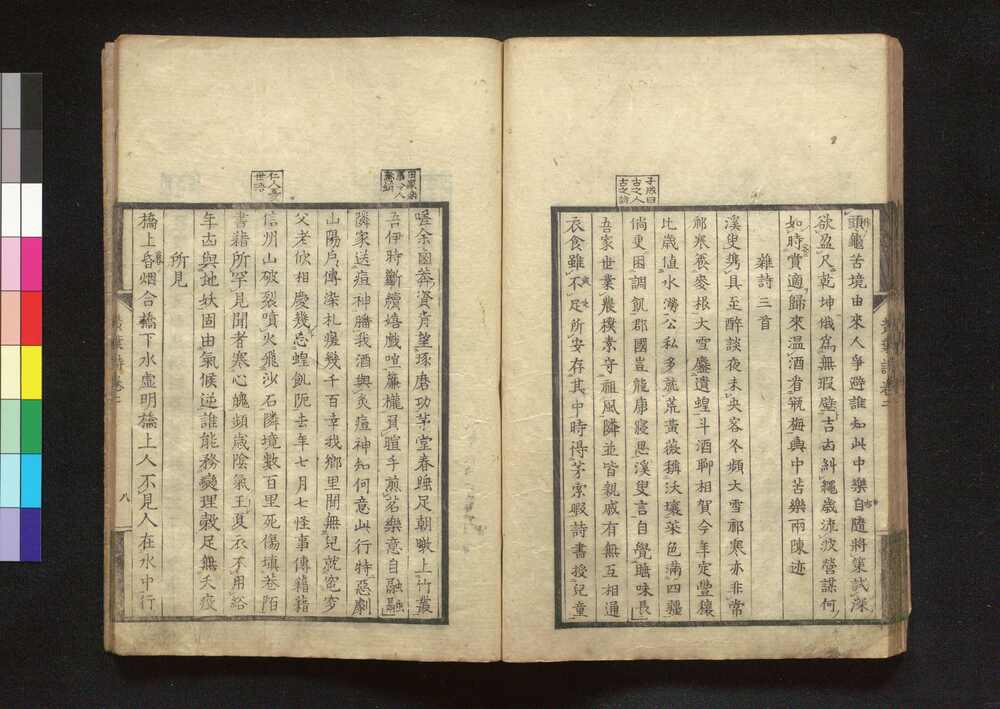 子成曰
古之人
古之詩
頭龜苦境由來人爭避誰知此中樂自隨將策試深
欲盈尺乾坤熾為無瑕璧吉凶糾纆歲流波營謀何
如時賞適歸來溫酒看瓶梅興中苦樂兩陳迹
雜詩三首
溪叟雋具至醉談夜未央客冬頻大雪祁寒亦非常
祁寒養麥根大雪鏖遺蝗斗酒聊相賀今年定豐穰
比歲值水澇公私多就荒黃薇稱沃壤菜色滿四疆
倘更困調飢郡國豈能康寢思溪叟言自覺聽味長
吾家世業農樸素守祖風隣並皆親戚有無互相通
衣食雖不足所安存其中時得茅索暇詩書授兒童
田家樂
仁人憂
世語
嗟余鹵莽資肯望琢磨功茅堂春睡足朝暾上竹叢
吾伊時斷續嬉戲喧簾櫳負暄手煎茗樂意自融融
隣家送痘神膰我酒與炙痘神知何意此行特惡劇
山陽戶傳染札瘥幾千百幸我鄉里間無兒就窀穸
父老欣相慶幾忘蝗飢阨去年七月七怪事傳藉藉
信州山破裂噴火飛沙石隣境數百里死傷填巷陌
書籍所罕見聞者寒心魄頻歲陰氣王夏衣不用綌
年凶與地妖固由氣候逆誰能務燮理穀足無夭疫
所見
橋上昏烟合橋下水虛明橋上人不見人在水中行
八